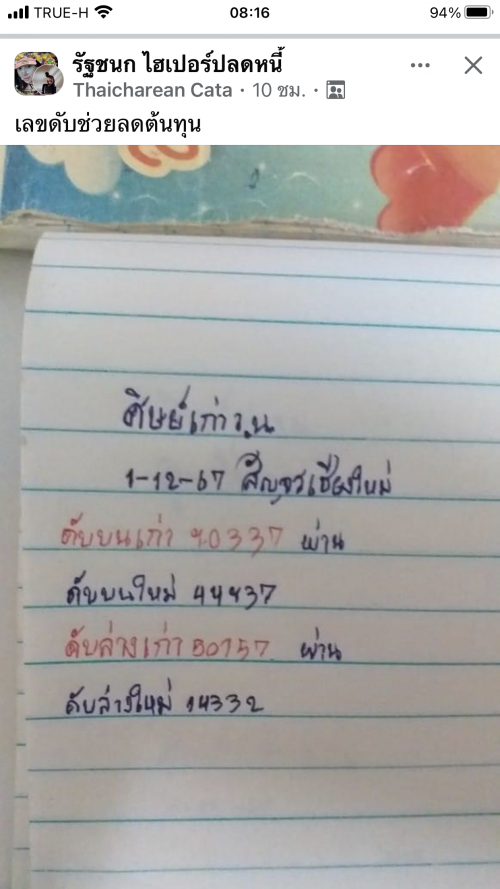 TRUE-H 08:16 94%
รัฐชนก ไฮเปอร์ปลดหนี้
Thaicharean Cata · 10 ชม. ·
เลขดับช่วยลดต้นทุน
ศิษย์เก่า
1-12-67 สัญจรเชียงใหม่
ดับบนเก่า 90337 ผ่าน
ดับบนใหม่ 44437
ดับล่างเก่า 50757 ผ่าน
ดับล่างใหม่ 14332